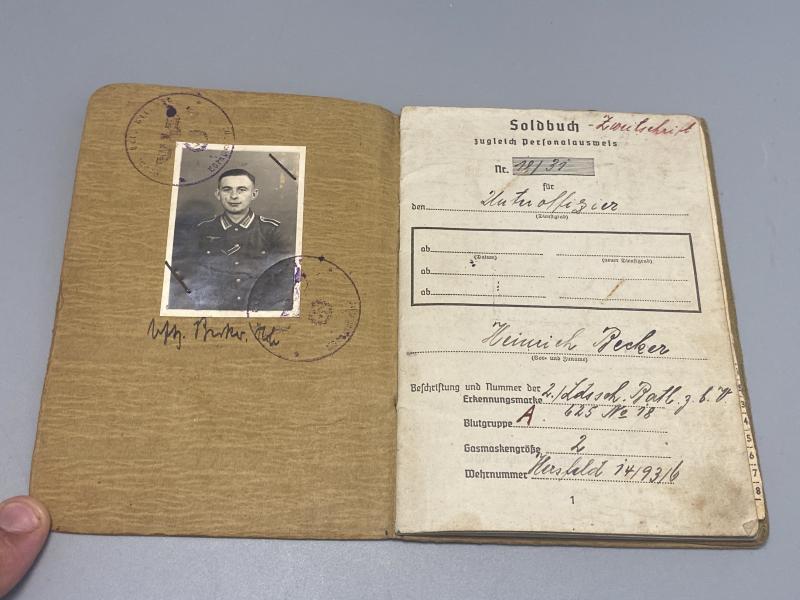 Soldbuch - Zweitschrift
zugleich Personalausweis
Nr. 18/31
für
den Unteroffizier
(Dienstgrad)
ab
(Datum) (neuer Dienstgrad)
ab
ab
Heinrich Becker
(Vor- und Zuname)
Beschriftung und Nummer der
Erkennungsmarke 2./Ldssch. Batl. z. b. V.
625 No 18
Blutgruppe A
Gasmaskengröße 2
Wehrnummer Hersfeld 14/93/6
1
3
4
5
6
7
8